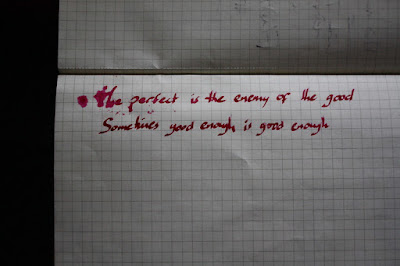 The perfect is the enemy of the good
Sometimes good enough is good enough